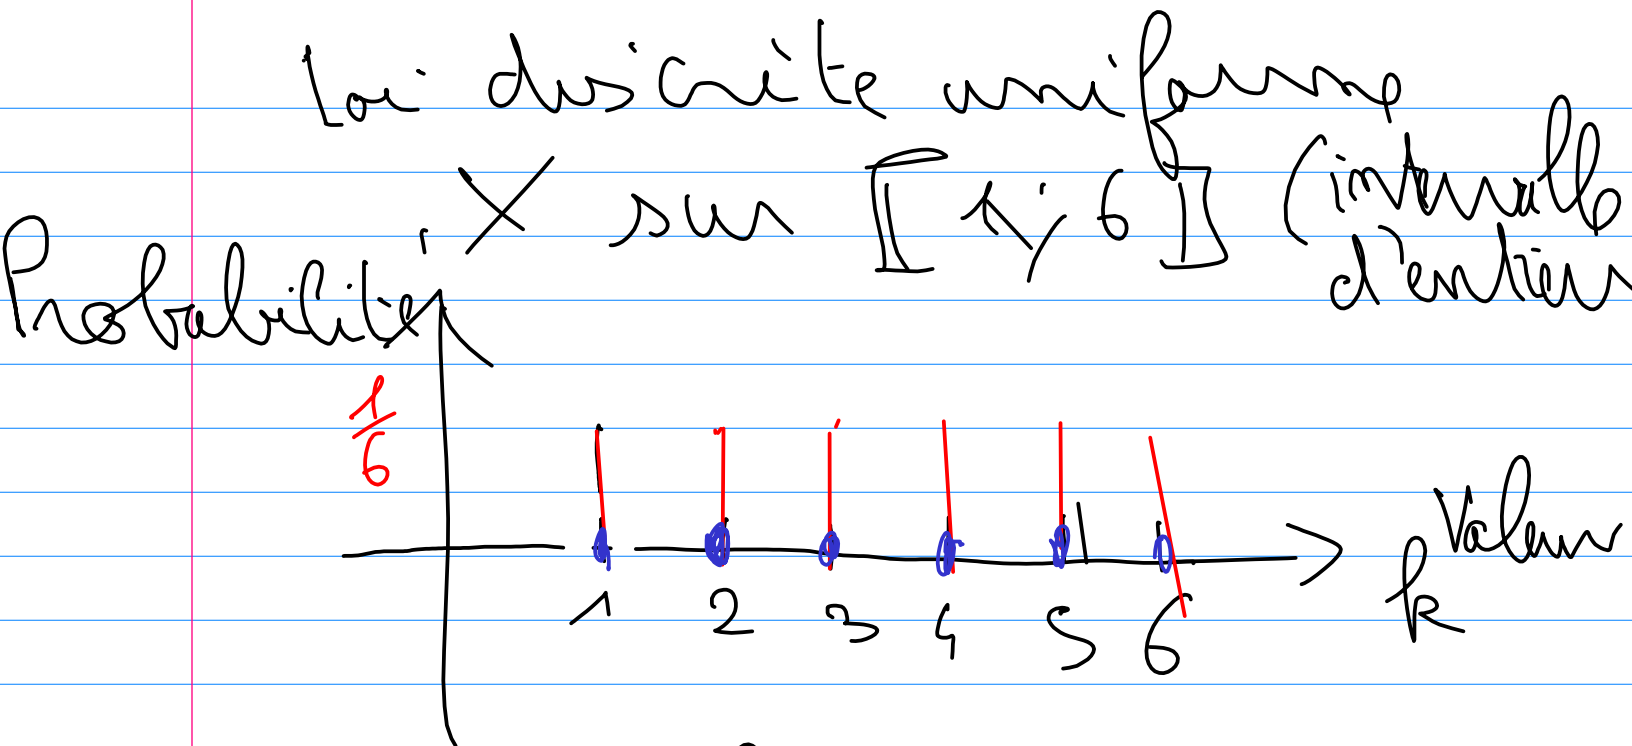 Loi discrète uniforme
X sur ⟦1; 6⟧ (intervalle
d'entiers
Probabilité
1/6
Valeur
k
1 2 3 4 5 6